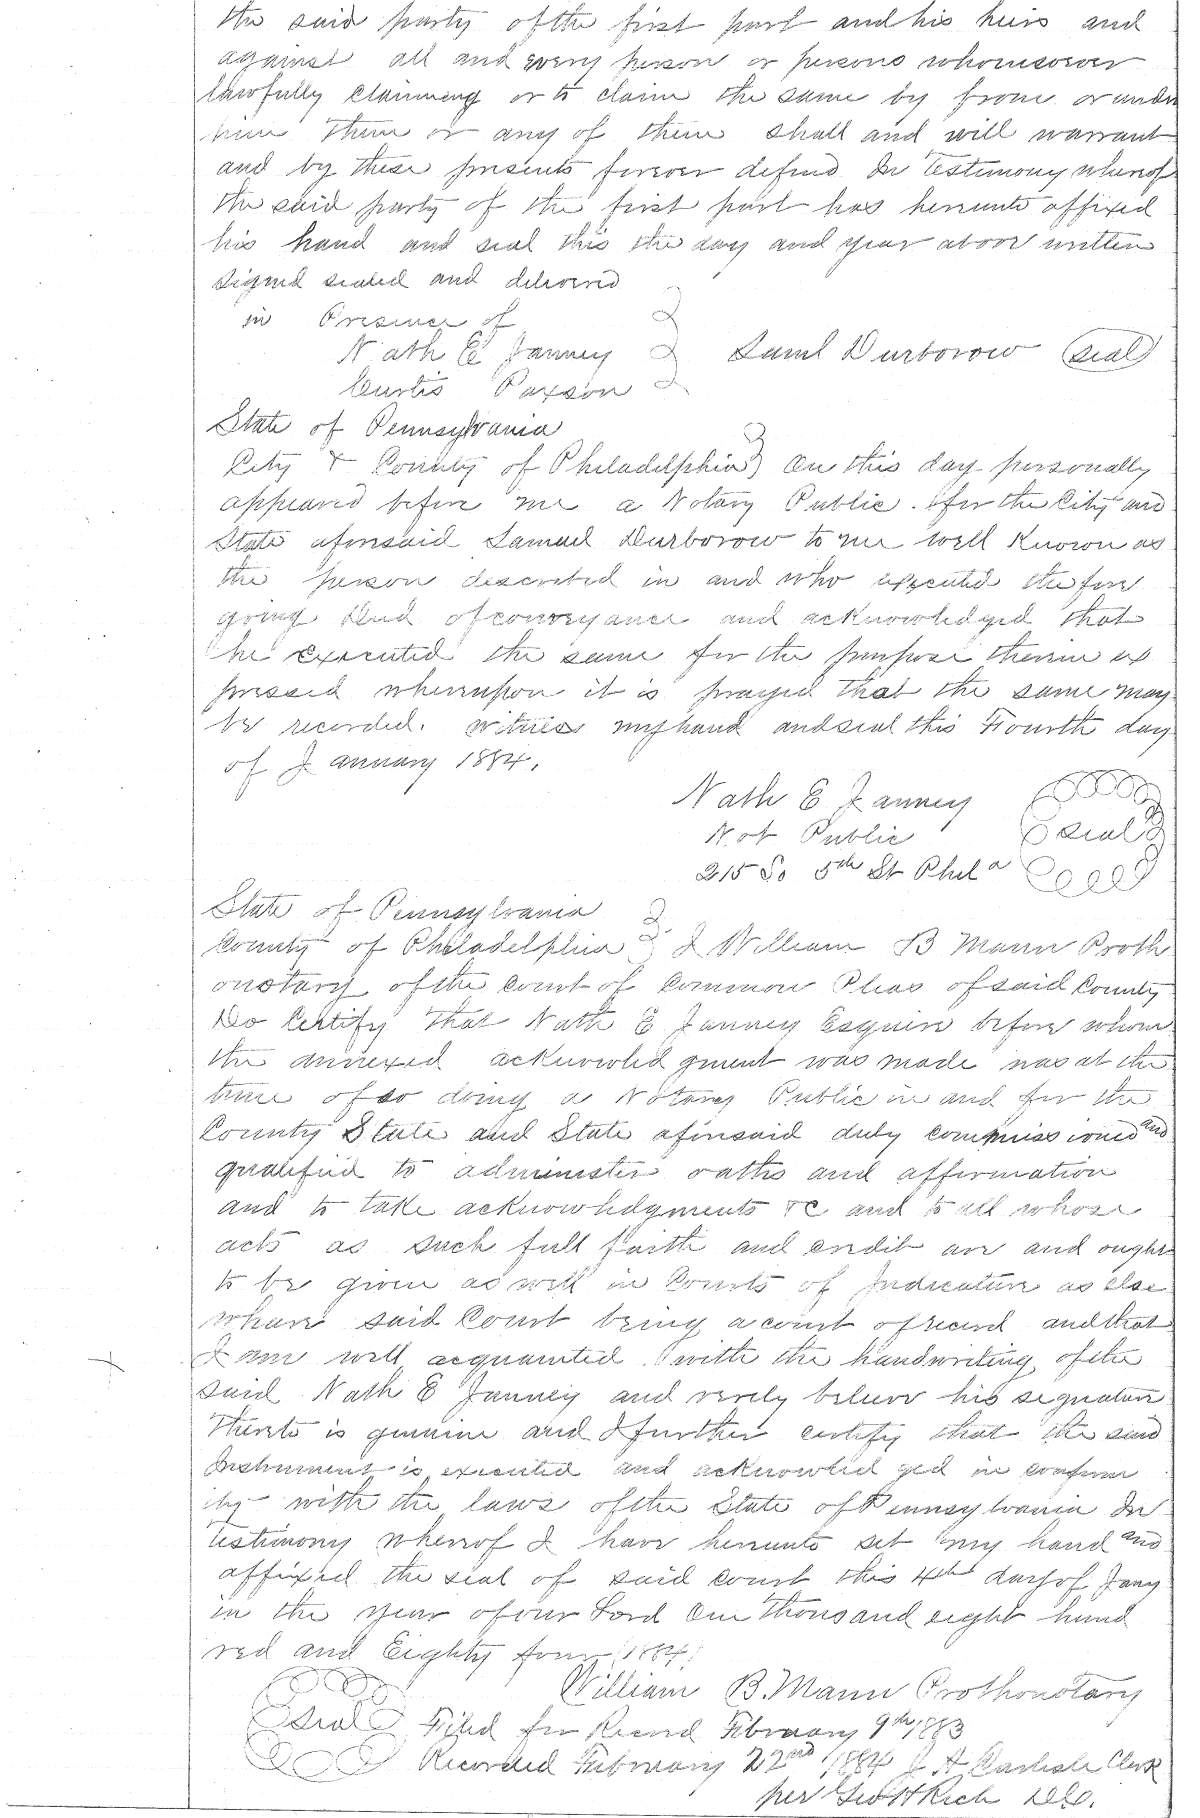 the said party of the first part and his heirs and
against all and every person or persons whomsoever
lawfully claiming or to claim the same by from or under
him them or any of them shall and will warrant
and by these presents forever defend In Testimony whereof
the said party of the first part has hereunto affixed
his hand and seal this the day and year above written
Signed sealed and delivered
in Presence of
Nath E Janney Saml Durborow (seal)
Curtis Paxson
State of Pennsylvania
City & County of Philadelphia) On this day personally
appeared before me a Notary Public for the City and
State aforesaid Samuel Durborow to me well Known as
the person described in and who executed the fore
going deed of conveyance and acknowledged that
he executed the same for the purpose therein ex
pressed whereupon it is prayed that the same may
be recorded. witness my hand and seal this Fourth day
of January 1884.
Nath E Janney
Not Public seal
215 So 5th St Phila
State of Pennsylvania
County of Philadelphia I William B Mann Proth
onotary of the Court of Common Pleas of said County
Do Certify that Nath E Janney Esquire before whom
the annexed acknowledgment was made was at the
time of so doing a Notary Public in and for the
County State and State aforesaid duly commissioned and
qualified to administer oaths and affirmation
and to take acknowledgments &C and to all whose
acts as such full faith and credit are and ought
to be given as well in Courts of Judicature as else
where said Court being a court of record and that
I am well acquainted with the handwriting of the
said Nath E Janney and verely believe his signature
thereto is genuine and I further certify that the said
Instrument is executed and acknowledged in conform
ity with the laws of the State of Pennsylvania In
Testimony whereof I have hereunto set my hand and
affixed the seal of said court this 4th day of Jany
in the year of our Lord One thousand eight hund
red and Eighty four (1884)
William B. Mann Prothonotary
Seal Filed for Record February 9th 1883
Recorded February 22nd 1884 J A Carlisle Clerk
per Geo H Rich D.C.